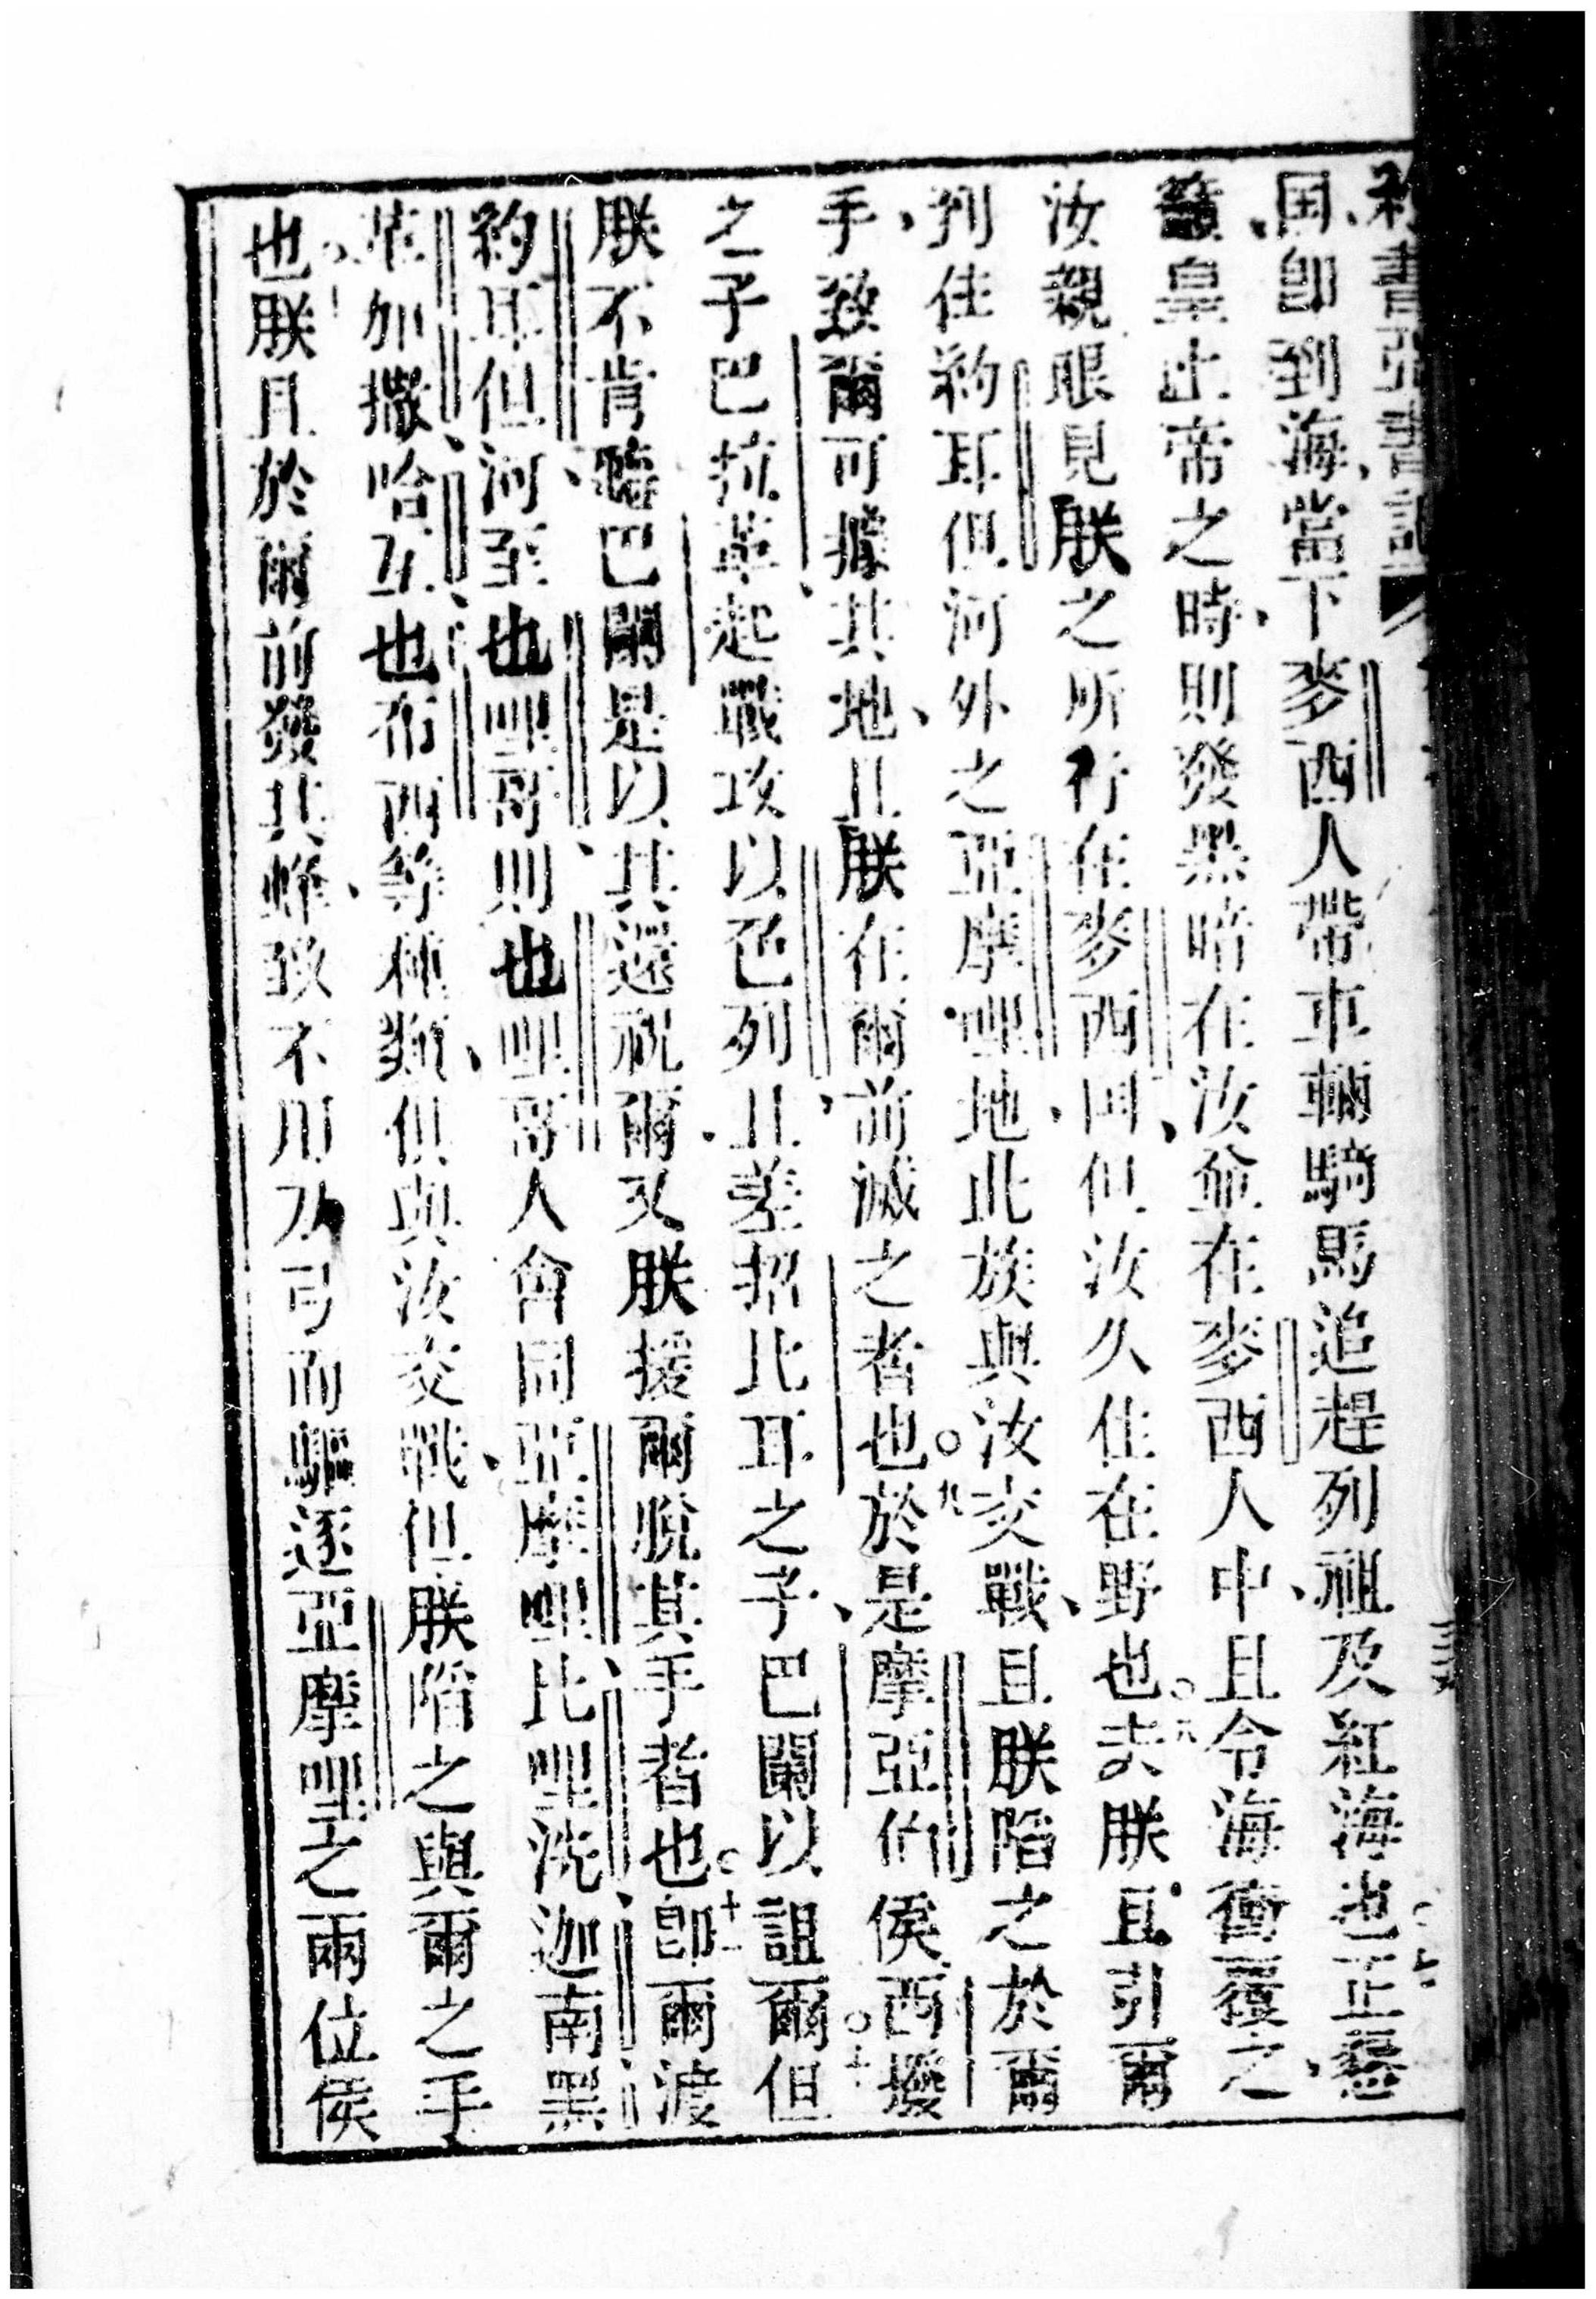 国、即到海、當下麥西人帶車輛騎馬追趕列祖及紅海也。七正懸
籲皇上帝之時、則發黑暗在汝並在麥西人中、且令海衝覆之、
汝親眼見朕之所行在麥西国、但汝久住在野也。八夫朕且引爾
到住約耳但河外之亞摩哩地、此族與汝交戰、且朕陷之於爾
手、致爾可據其地、且朕在爾前滅之者也。九於是摩亞伯侯西撥
之子巴拉、革起戰攻以色列、且差招比耳之子、巴闌以詛爾。十但
朕不肯聽巴闌、是以其還祝爾、又朕援爾脫其手者也。十一即爾渡
約耳但河、至也哩哥、則也哩哥人會同亞摩哩、比哩洗、迦南、黑
革加撒、哈互、也布西等種類、俱與汝交戰、但朕陷之與爾之手
也、朕且於爾前發其蜂、致不用刀弓而驅逐亞摩哩之兩位侯